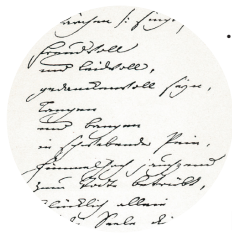 Clärchen /: singt,
freudvoll
und leidvoll,
gedankenvoll seyn,
langen
und bangen
in schwebender Pein,
himmelhoch jauchzend
zum Tode betrübt,
glücklich allein
Seele di